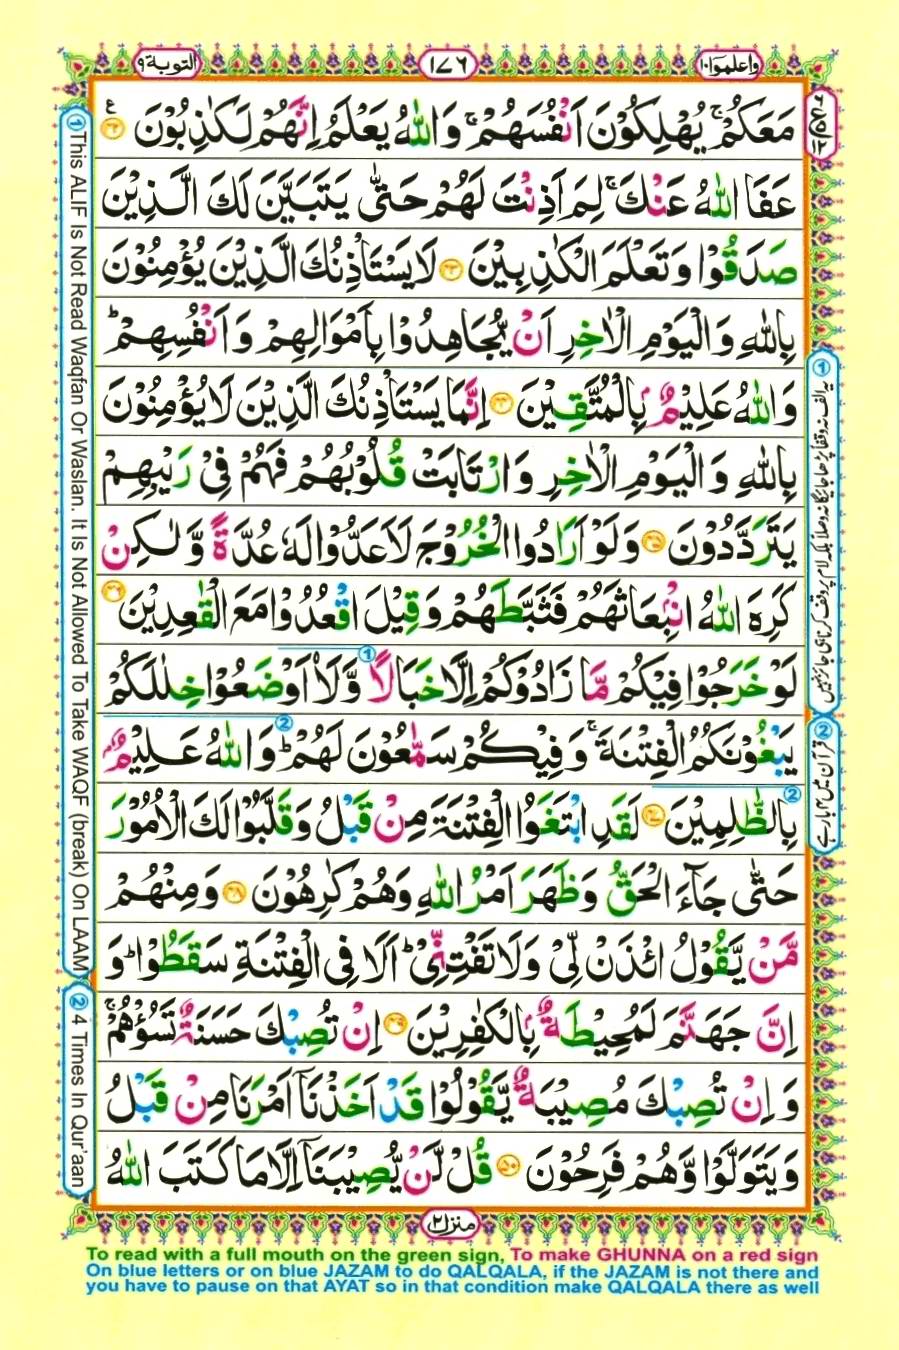 واعلموا ١٠
١٧٦
التوبة ٩
مَعَكُمْ ۚ يُهْلِكُوْنَ اَنْفُسَهُمْ ۚ وَاللّٰهُ يَعْلَمُ اِنَّهُمْ لَكٰذِبُوْنَ ۝٤٢ ع
عَفَا اللّٰهُ عَنْكَ ۚ لِمَ اَذِنْتَ لَهُمْ حَتّٰى يَتَبَيَّنَ لَكَ الَّذِيْنَ
صَدَقُوْا وَتَعْلَمَ الْكٰذِبِيْنَ ۝٤٣ لَا يَسْتَاْذِنُكَ الَّذِيْنَ يُؤْمِنُوْنَ
بِاللّٰهِ وَالْيَوْمِ الْاٰخِرِ اَنْ يُّجَاهِدُوْا بِاَمْوَالِهِمْ وَاَنْفُسِهِمْ ؕ
وَاللّٰهُ عَلِيْمٌۢ بِالْمُتَّقِيْنَ ۝٤٤ اِنَّمَا يَسْتَاْذِنُكَ الَّذِيْنَ لَا يُؤْمِنُوْنَ
بِاللّٰهِ وَالْيَوْمِ الْاٰخِرِ وَارْتَابَتْ قُلُوْبُهُمْ فَهُمْ فِيْ رَيْبِهِمْ
يَتَرَدَّدُوْنَ ۝٤٥ وَلَوْ اَرَادُوا الْخُرُوْجَ لَاَعَدُّوْا لَهٗ عُدَّةً وَّلٰكِنْ
كَرِهَ اللّٰهُ انْۢبِعَاثَهُمْ فَثَبَّطَهُمْ وَقِيْلَ اقْعُدُوْا مَعَ الْقٰعِدِيْنَ ۝٤٦
لَوْ خَرَجُوْا فِيْكُمْ مَّا زَادُوْكُمْ اِلَّا خَبَالًا ① وَّلَا۟اَوْضَعُوْا خِلٰلَكُمْ
يَبْغُوْنَكُمُ الْفِتْنَةَ ۚ وَفِيْكُمْ سَمّٰعُوْنَ لَهُمْ ؕ ② وَاللّٰهُ عَلِيْمٌۢ
بِالظّٰلِمِيْنَ ② ۝٤٧ لَقَدِ ابْتَغَوُا الْفِتْنَةَ مِنْ قَبْلُ وَقَلَّبُوْا لَكَ الْاُمُوْرَ
حَتّٰى جَآءَ الْحَقُّ وَظَهَرَ اَمْرُ اللّٰهِ وَهُمْ كٰرِهُوْنَ ۝٤٨ وَمِنْهُمْ
مَّنْ يَّقُوْلُ ائْذَنْ لِّيْ وَلَا تَفْتِنِّيْ ؕ اَلَا فِي الْفِتْنَةِ سَقَطُوْا ؕ وَ
اِنَّ جَهَنَّمَ لَمُحِيْطَةٌۢ بِالْكٰفِرِيْنَ ۝٤٩ اِنْ تُصِبْكَ حَسَنَةٌ تَسُؤْهُمْ ۚ
وَاِنْ تُصِبْكَ مُصِيْبَةٌ يَّقُوْلُوْا قَدْ اَخَذْنَاۤ اَمْرَنَا مِنْ قَبْلُ
وَيَتَوَلَّوْا وَّهُمْ فَرِحُوْنَ ۝٥٠ قُلْ لَّنْ يُّصِيْبَنَاۤ اِلَّا مَا كَتَبَ اللّٰهُ
② قرآن میں ۴ بار ہے
① This ALIF Is Not Read Waqfan Or Waslan. It Is Not Allowed To Take WAQF (break) On LAAM
② 4 Times In Qur'aan
منزل ٢
To read with a full mouth on the green sign, To make GHUNNA on a red sign
On blue letters or on blue JAZAM to do QALQALA, if the JAZAM is not there and
you have to pause on that AYAT so in that condition make QALQALA there as well